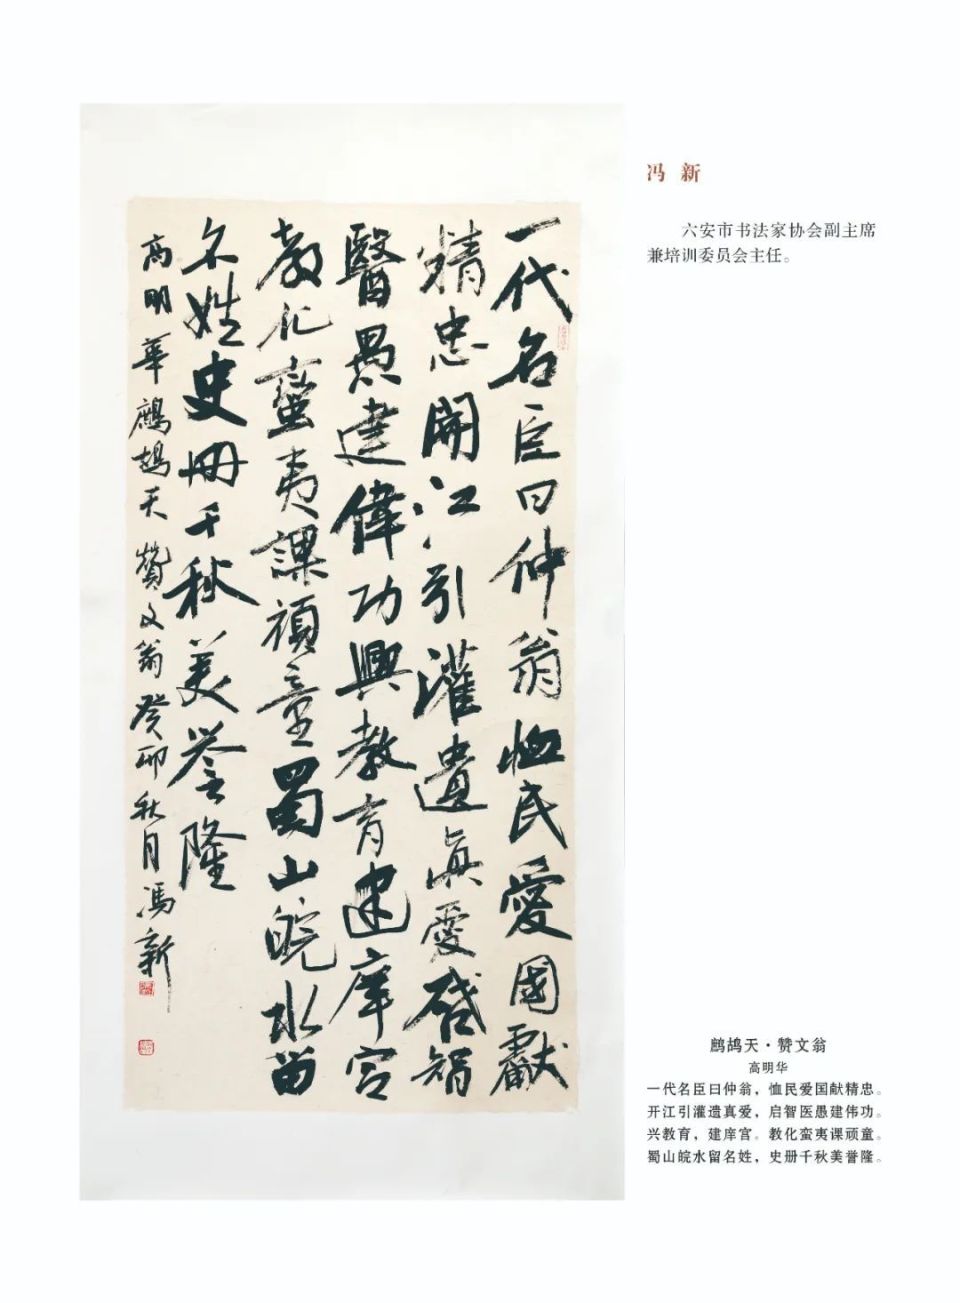 一代名臣曰仲翁恤民愛國獻
精忠開江引灌遺真愛啓智
醫愚建偉功興教育建庠宫
教化蠻夷課頑童蜀山皖水留
名姓史册千秋美誉隆
高明華鷓鴣天贊文翁癸卯秋月馮新
冯 新
六安市书法家协会副主席
兼培训委员会主任。
鹧鸪天·赞文翁
高明华
一代名臣曰仲翁，恤民爱国献精忠。
开江引灌遗真爱，启智医愚建伟功。
兴教育，建庠宫。教化蛮夷课顽童。
蜀山皖水留名姓，史册千秋美誉隆。